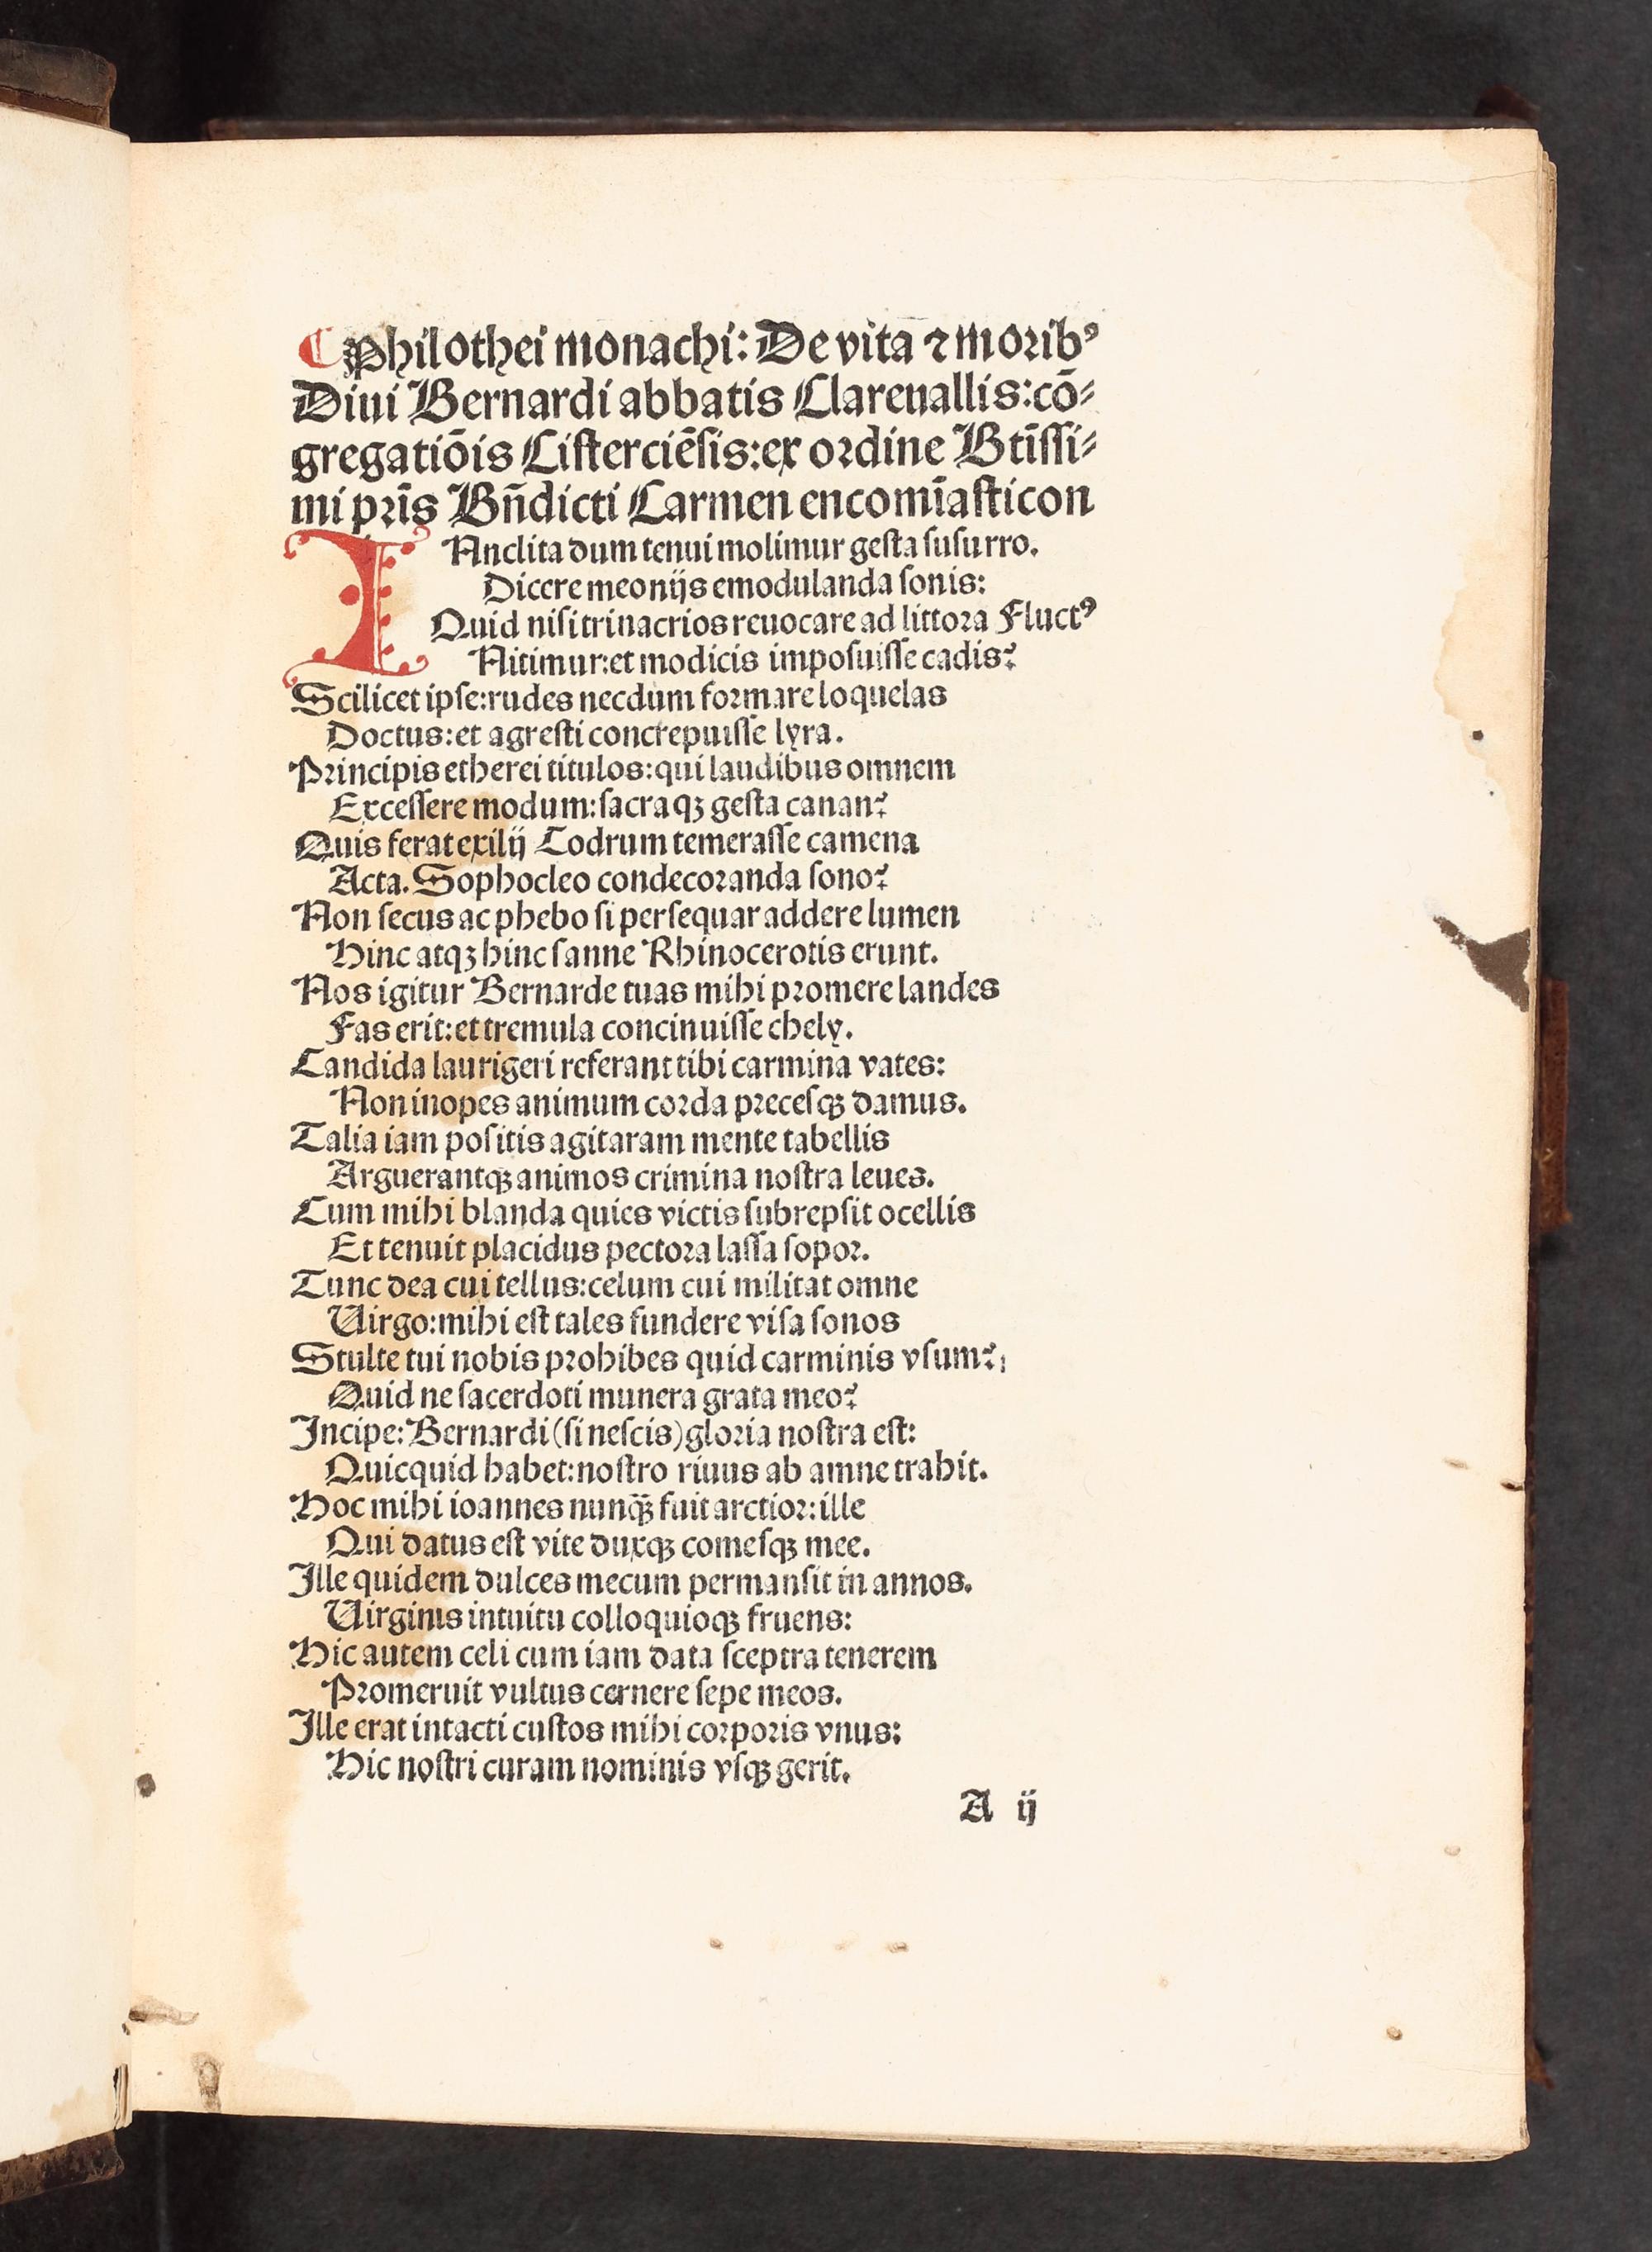 Philothei monachi: De vita ⁊ moribꝰ
Diui Bernardi abbatis Clareuallis: cō⸗
gregatiōis Cisterciēsis: ex ordine Btīssi⸗
mi pr̄is Bn̄dicti Carmen encomiasticon
INclita dum tenui molimur gesta susurro.
Dicere meonijs emodulanda sonis:
Quid nisi trinacrios reuocare ad littora Fluctꝰ
Nitimur: et modicis imposuisse cadis?
Scilicet ipse: rudes necdum formare loquelas
Doctus: et agresti concrepuisse lyra.
Principis etherei titulos: qui laudibus omnem
Excessere modum: sacra qꝫ gesta canan?
Quis ferat exilij Codrum temerasse camena
Acta. Sophocleo condecoranda sono?
Non secus ac phebo si persequar addere lumen
Hinc atqꝫ hinc sanne Rhinocerotis erunt.
Nos igitur Bernarde tuas mihi promere landes
Fas erit: et tremula concinuisse chely.
Candida laurigeri referant tibi carmina vates:
Non inopes animum corda precesqꝫ damus.
Talia iam positis agitaram mente tabellis
Arguerantqꝫ animos crimina nostra leues.
Cum mihi blanda quies victis subrepsit ocellis
Et tenuit placidus pectora lassa sopor.
Tunc dea cui tellus: celum cui militat omne
Uirgo: mihi est tales fundere visa sonos
Stulte tui nobis prohibes quid carminis vsum?
Quid ne sacerdoti munera grata meo?
Incipe: Bernardi (si nescis) gloria nostra est:
Quicquid habet: nostro riuus ab amne trahit.
Hoc mihi ioannes nunqꝫ̄ fuit arctior: ille
Qui datus est vite duxqꝫ comesqꝫ mee.
Ille quidem dulces mecum permansit in annos.
Uirginis intuitu colloquioqꝫ fruens:
Hic autem celi cum iam data sceptra tenerem
Promeruit vultus cernere sepe meos.
Ille erat intacti custos mihi corporis vnus:
Hic nostri curam nominis vsqꝫ gerit.
A ij